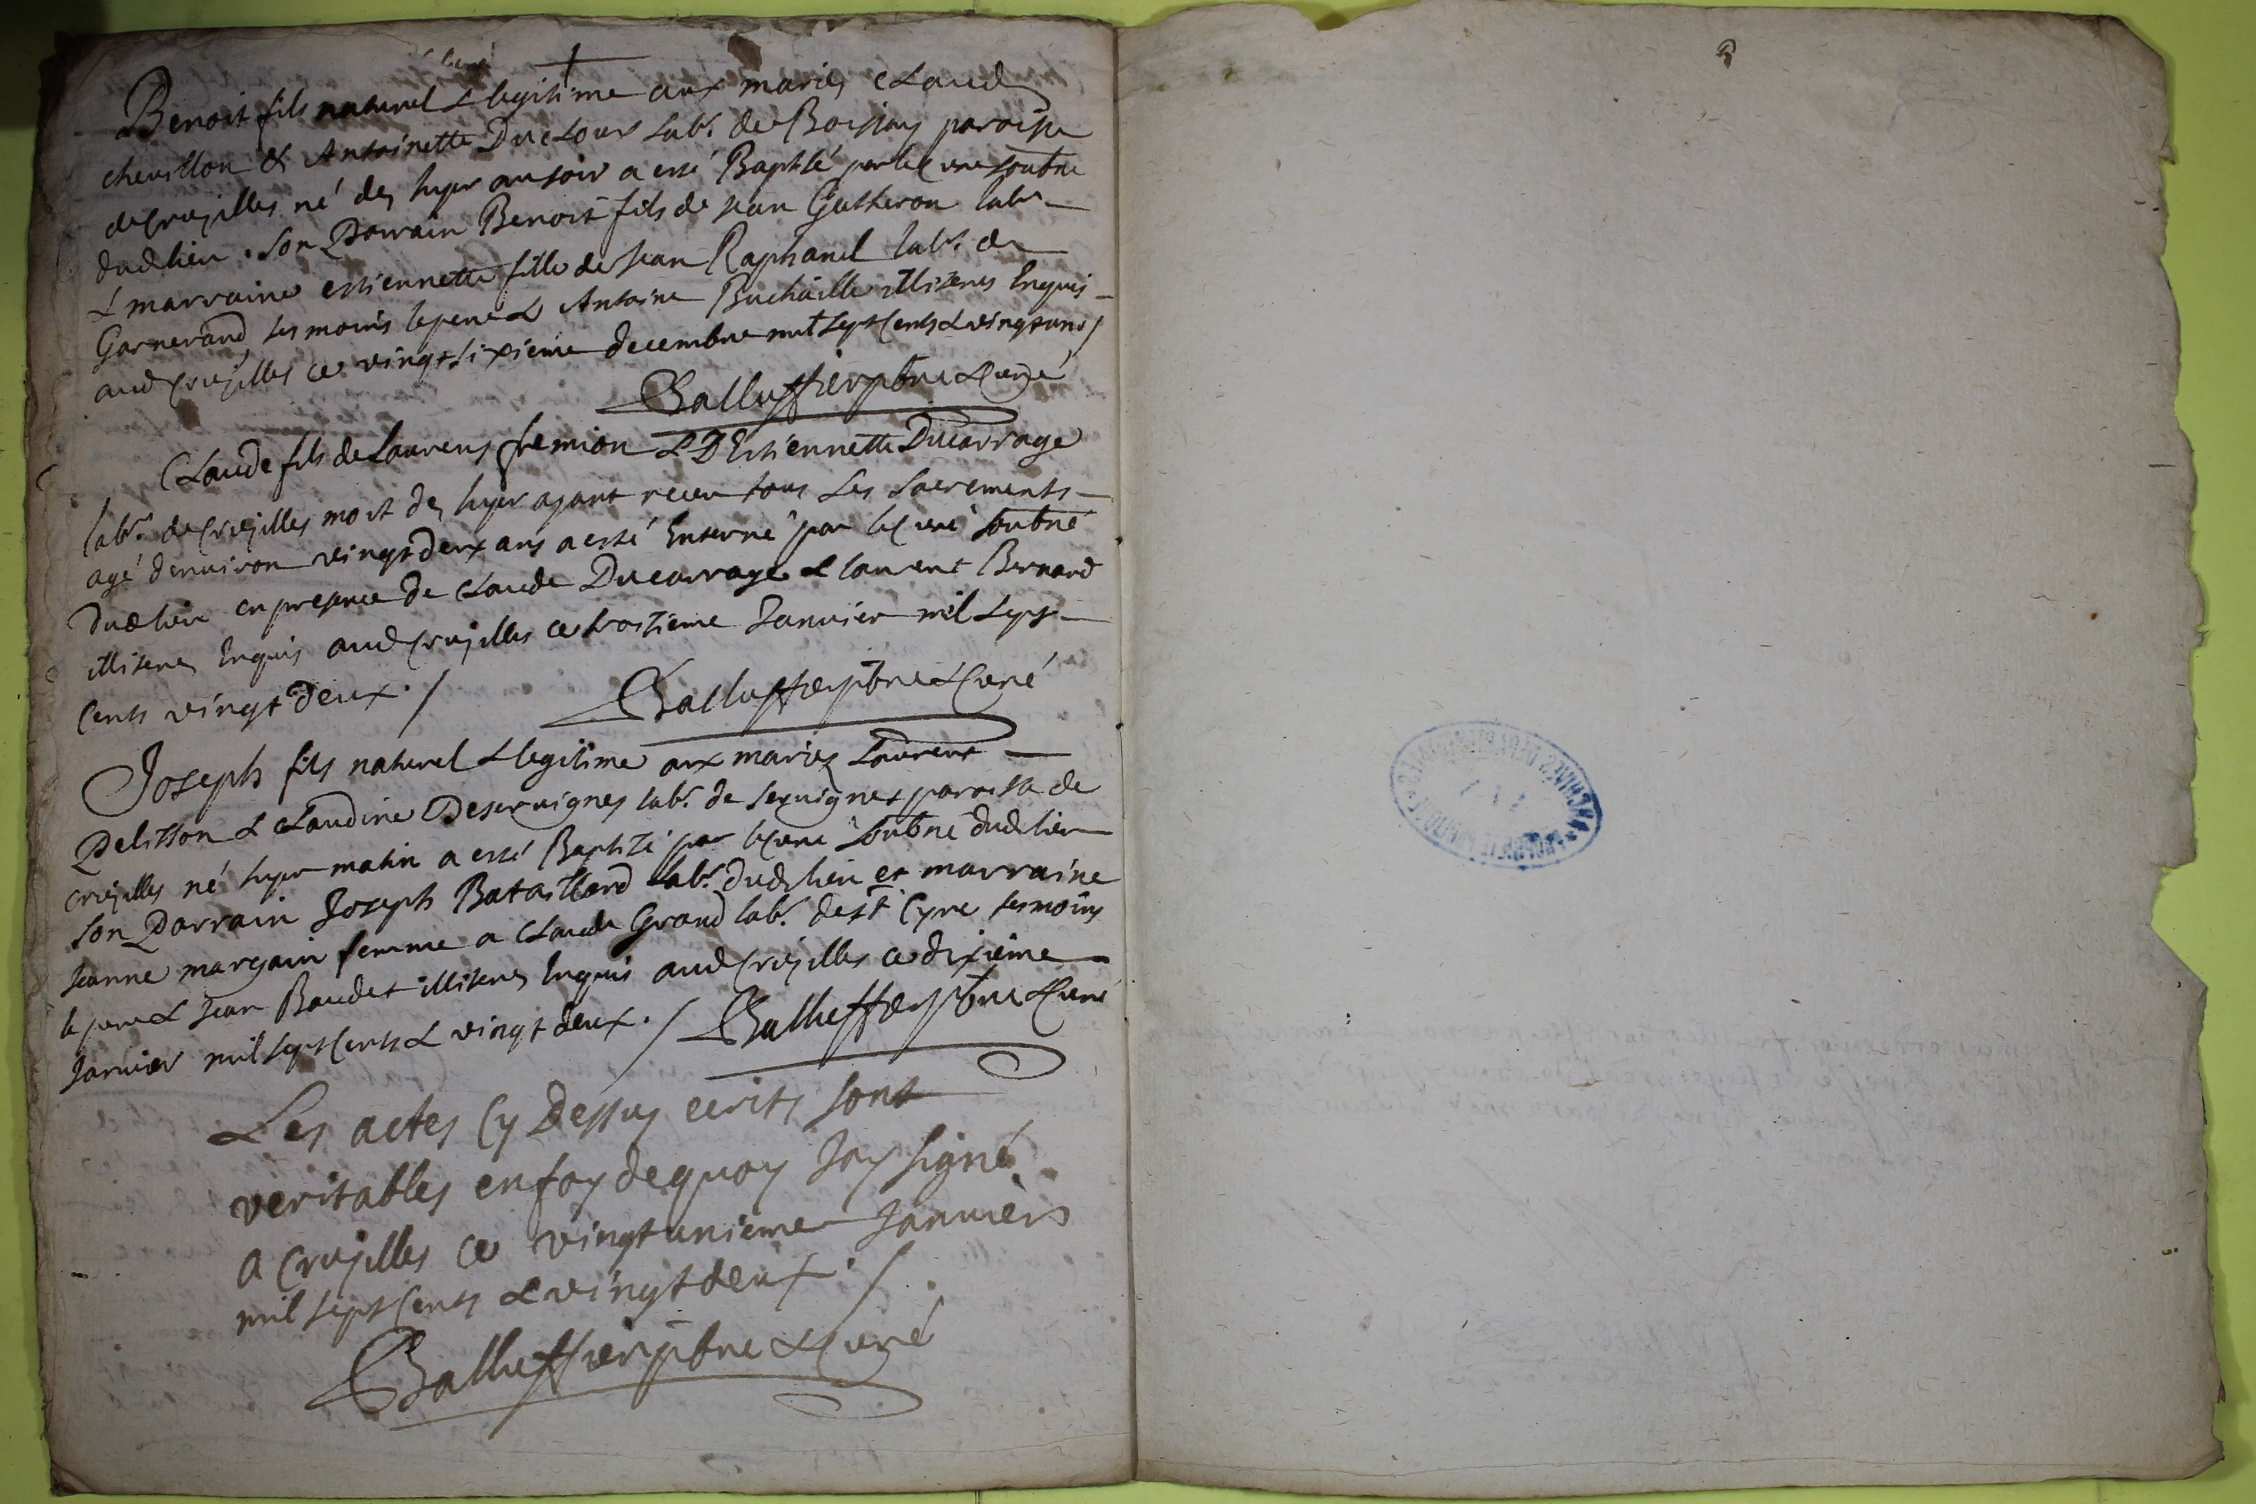 Benoit fils naturel & legitime aux mariez Claud
chevillon & Antoinette Duclour labr. de Boissay paroisse
de Crusilles né des hyer au soir a esté Baptisé par le Curé soubné
dud lieu. Son Parrain Benoit fils de Jean Gutheron labr
& marraine estiennette fille de Jean Raphanel labr. de
Garnerand tesmoins le pere & Antoine Buchaille illiterés Enquis
aud Crusilles ce vingt sixieme decembre mil sept Cents & vingt un /
Balluffier pbre & Curé
Claude fils de Laurens fremion & D Estiennette Ducarrage
labr. de Crusilles mort des hyer ayant receu tous Les Sacrements
agé denviron vingt deux ans a esté Enterré par le Curé soubné
dud lieu en presence de Claude Ducarrage & laurent Bernard
illiteres Enquis aud Crusilles ce troisieme Janvier mil sept
Cents vingt deux ./
Balluffier pbre & Curé
Joseph fils naturel & legitime aux mariez Laurent
Pelisson & Claudine Deservignes labr. de servignet paroisse de
Crusilles né hyer matin a esté Baptisé par le Curé soubné dud lieu
Son Parrain Joseph Bataillard labr. dud lieu et marraine
Jeanne margain femme a Claude Grand labr. de st Cyre tesmoins
le pere & Jean Baudet illiteres Enquis aud Crusilles ce dixieme
Janvier mil sept Cents & vingt deux ./ Balluffier pbre & Curé
Les actes Cy Dessus ecrits sont
veritables en foy de quoy Jay signé
a Crusilles ce vingt unieme Janvier
mil sept Cents & vingt deux ./.
Balluffier pbre & Curé